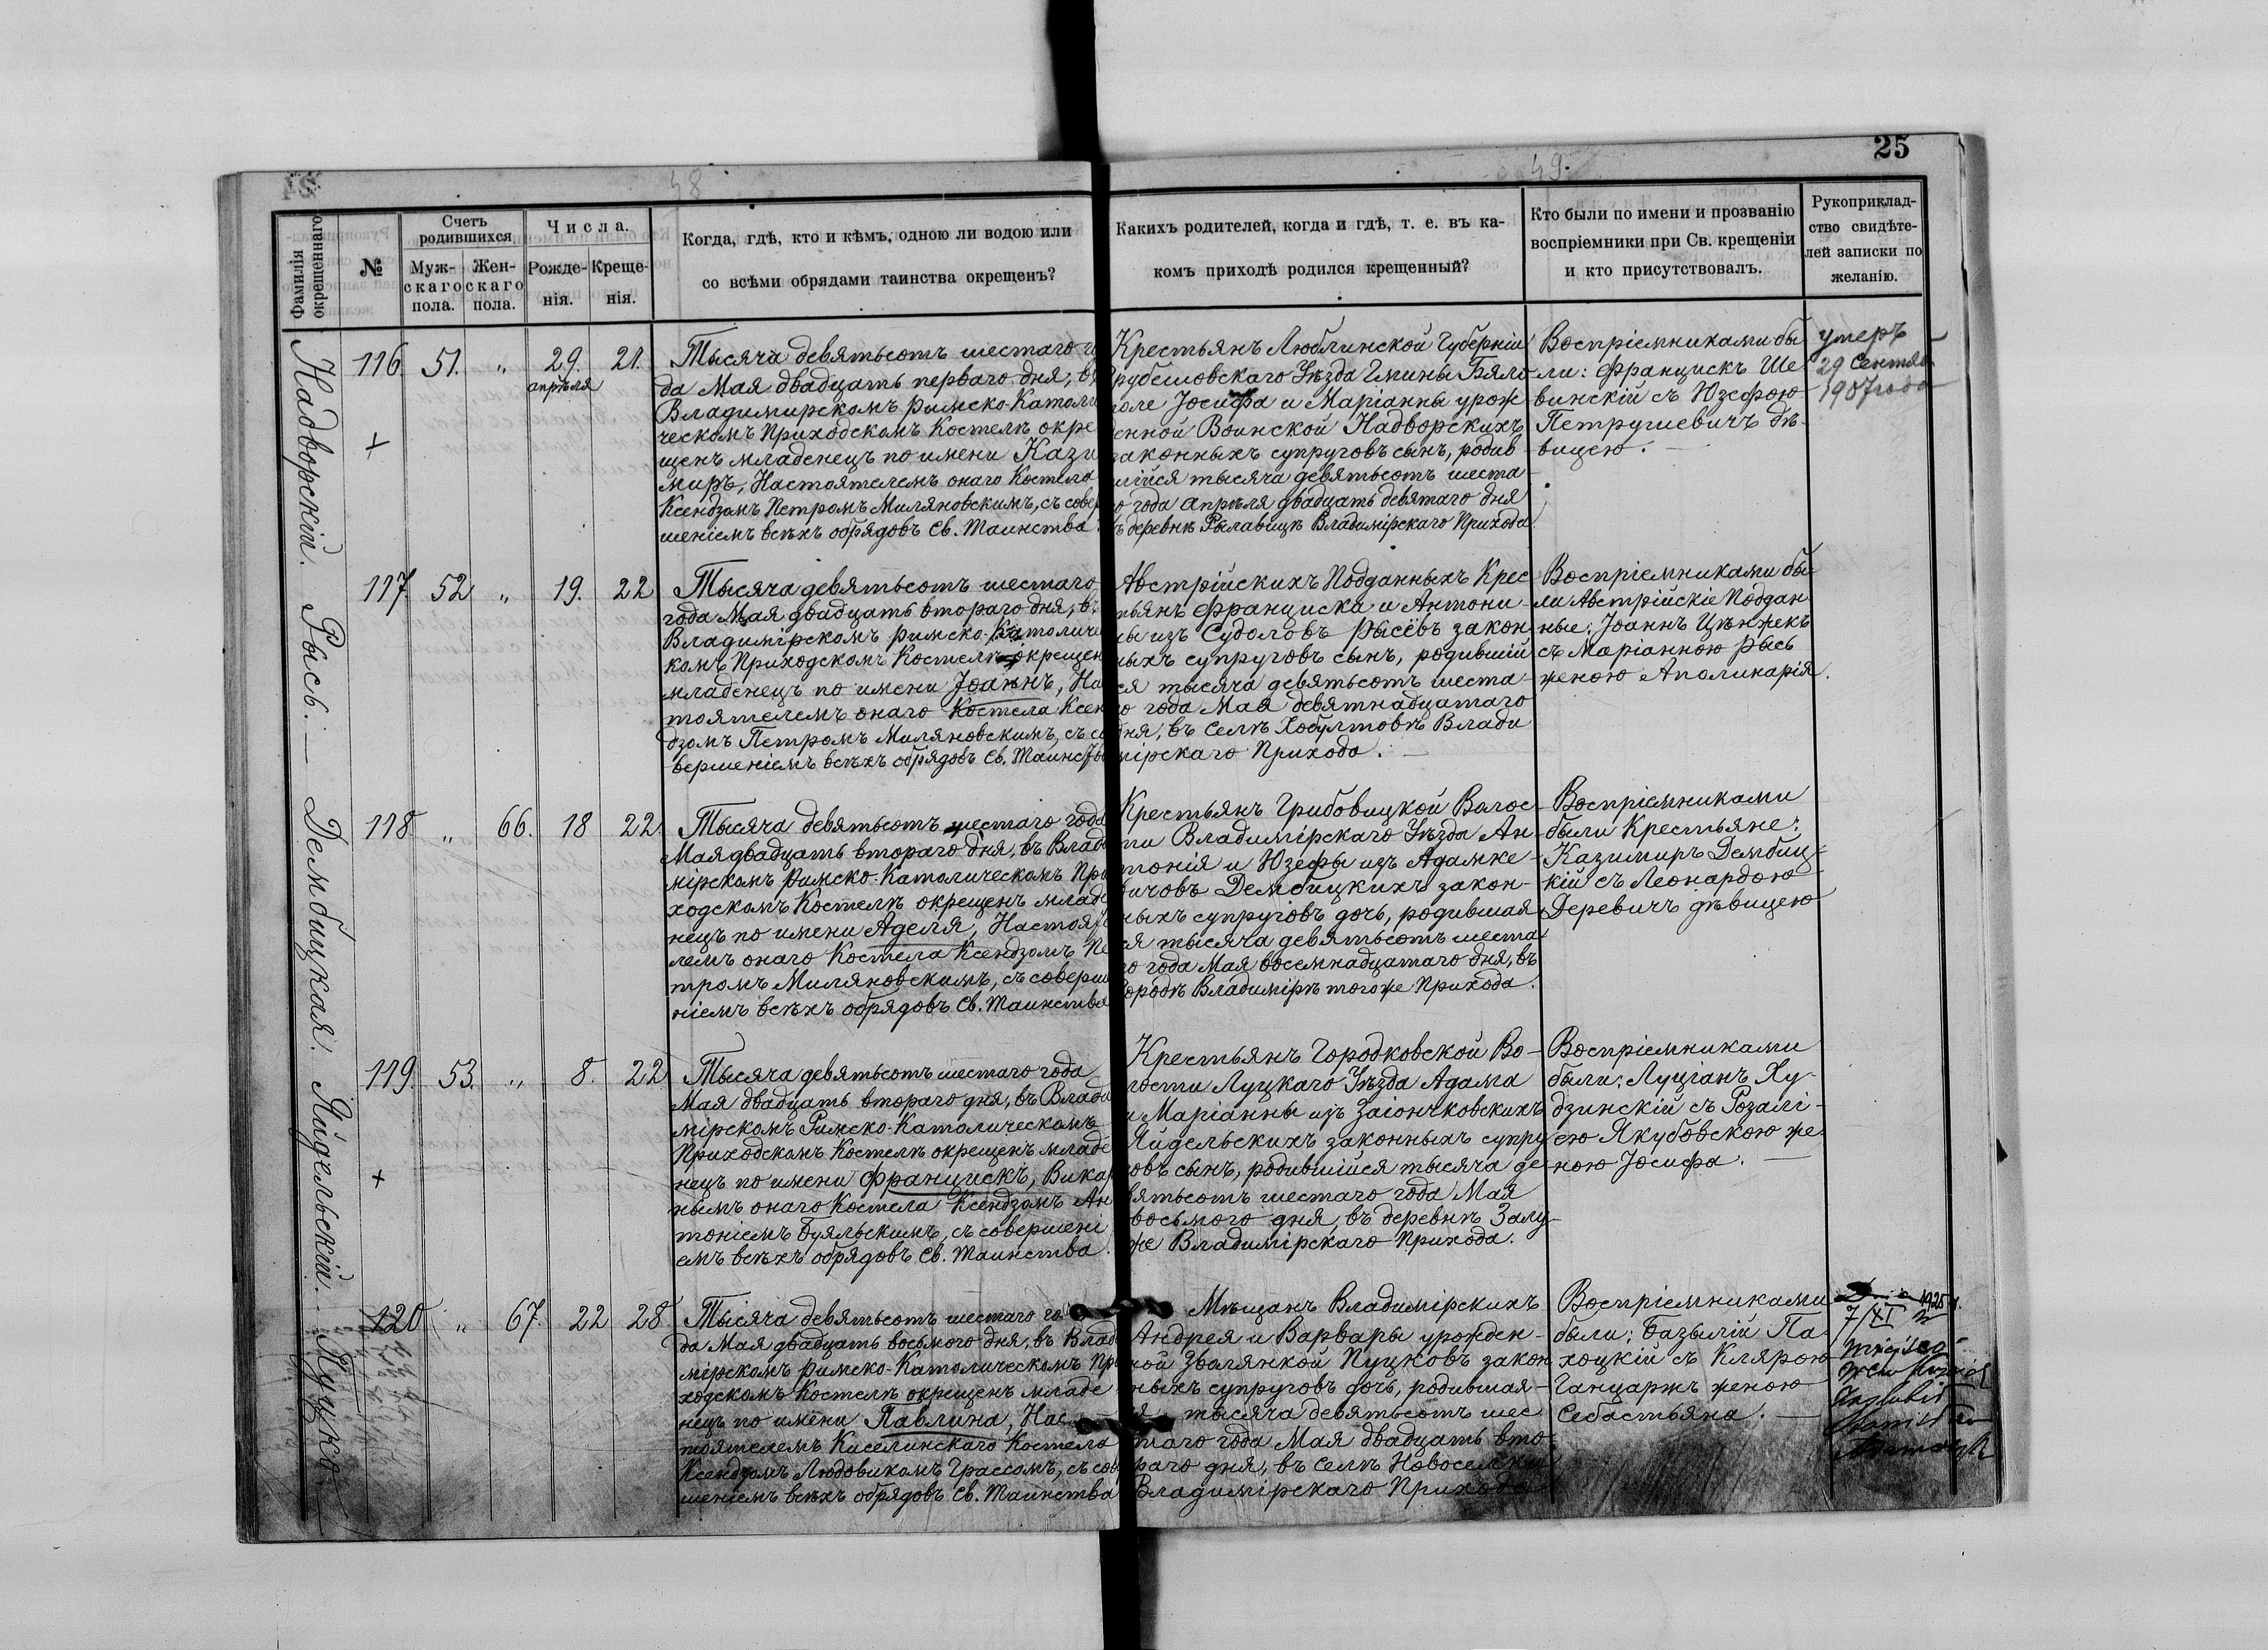 25
48
49.
Фамилія окрещеннаго
№
Счетъ родившихся
Муж-
скаго
пола.
Жен-
скаго
пола.
Числа.
Рожде-
нія.
Креще-
нія.
Когда, гдѣ, кто и кѣмъ, одною ли водою или
со всѣми обрядами таинства окрещенъ?
Какихъ родителей, когда и гдѣ, т. е. въ ка-
комъ приходѣ родился крещенный?
Кто были по имени и прозванію
воспріемники при Св. крещеніи
и кто присутствовалъ.
Рукоприклад-
ство свидѣте-
лей записки по
желанію.
Надворскій.
116. 51. " 29. 21.
апрѣля
+
Тысяча девятьсотъ шестаго го
да Мая двадцать перваго дня, въ
Владимирскомъ Римско-Католи
ческомъ Приходскомъ Костелѣ окре
щенъ младенецъ по имени Кази
миръ, Настоятелемъ онаго Костела
Ксендзомъ Петромъ Миляновскимъ, съ совер
шеніемъ всѣхъ обрядовъ Св. Таинства
Крестьянъ Люблинской Губерніи
Грубешовскаго Уѣзда Гмины Бяло
поле Іосифа и Маріанны урож
денной Воинской Надворскихъ
законныхъ супруговъ сынъ, родив
шійся тысяча девятьсотъ шеста
го года апрѣля двадцать девятаго дня
въ деревнѣ Владимірскаго Прихода
Воспріемниками бы
ли: Францискъ Ше
винскій съ Юзефою
Петрушевичъ дѣ-
вицею.
умеръ
29 Сентяб
1907 года
Рысь.
117. 52 " 19. 22
Тысяча девятьсотъ шестаго
года Мая двадцать втораго дня, въ
Владимірскомъ Римско-Католиче
комъ Приходскомъ Костелѣ окрещен
младенецъ по имени Іоаннъ, На
тоятелемъ онаго Костела Ксен
дзомъ Петромъ Миляновскимъ, съ со
вершеніемъ всѣхъ обрядовъ Св. Таинства
Австрійскихъ Подданныхъ Крес
тьянъ Франциска и Антони-
ны изъ Судоловъ Рысёвъ закон
ныхъ супруговъ сынъ, родившій
ся тысяча девятьсотъ шеста-
го года Мая девятнадцатаго
дня, въ Селѣ Хобултовѣ Влади
мірскаго Прихода.
Воспріемниками бы-
ли Австрійскіе Поддан
ные: Іоаннъ Цѣнжекъ
съ Маріанною Рысь
женою Аполинарія.
Дембицкая.
118. " 66. 18 22.
Тысяча девятьсотъ шестаго года
Мая двадцать втораго дня, въ Влади
мірскомъ Римско-Католическомъ При
ходскомъ Костелѣ окрещенъ младе
нецъ по имени Аделя, Настояте
лемъ онаго Костела Ксендзомъ Пе
тромъ Миляновскимъ, съ соверше
ніемъ всѣхъ обрядовъ Св. Таинства
Крестьянъ Грибовицкой Волос-
ти Владимірскаго Уѣзда Ан-
тонія и Юзефы изъ Адамке-
вичовъ Дембицкихъ закон-
ныхъ супруговъ дочь, родившая
ся тысяча девятьсотъ шеста
го года Мая восемнадцатаго дня, въ
городѣ Владимірѣ тогоже Прихода.
Воспріемниками
были Крестьяне:
Казимиръ Дембиц-
кій съ Леонардою
Деревичъ дѣвицею
Яйдельскій.
119. 53. " 8. 22
+
Тысяча девятьсотъ шестаго года
Мая двадцать втораго дня, въ Влади
мірскомъ Римско-Католическомъ
Приходскомъ Костелѣ окрещенъ младе
нецъ по имени Францискъ, Викар
нымъ онаго Костела Ксендзомъ Ан
тоніемъ Буяльскимъ, съ совершені
емъ всѣхъ обрядовъ Св. Таинства.
Крестьянъ Городковской Во-
лости Луцкаго Уѣзда Адама
и Маріанны изъ Заіончковскихъ
Яйдельскихъ законныхъ супру
говъ сынъ, родившійся тысяча де
вятьсотъ шестаго года Мая
восьмого дня, въ деревнѣ Залу-
же Владимірскаго Прихода.
Воспріемниками
были: Луціанъ Ху-
дзинскій съ Розалі-
ею Якубовскою же
ною Іосифа.
Пуцко
120 " 67. 22 28
Тысяча девятьсотъ шестаго го
да Мая двадцать восьмого дня, въ Влади
мірскомъ Римско-Католическомъ При
ходскомъ Костелѣ окрещенъ младе
нецъ по имени Павлина, Нас
тоятелемъ Киселинскаго Костела
Ксендзомъ Людовикомъ Грассомъ, съ совер
шеніемъ всѣхъ обрядовъ Св. Таинства
Мѣщанъ Владимірскихъ
Андрея и Варвары урожден-
ной Звалянкой Пуцковъ закон
ныхъ супруговъ дочь, родившая-
ся тысяча девятьсотъ шес
таго года Мая двадцать вто-
раго дня, въ селѣ Новоселки
Владимірскаго Прихода
Воспріемниками
были: Базылій Па-
хоцкій съ Клярою
Ганцаржъ женою
Себастьяна.
1925 r.
7/XI